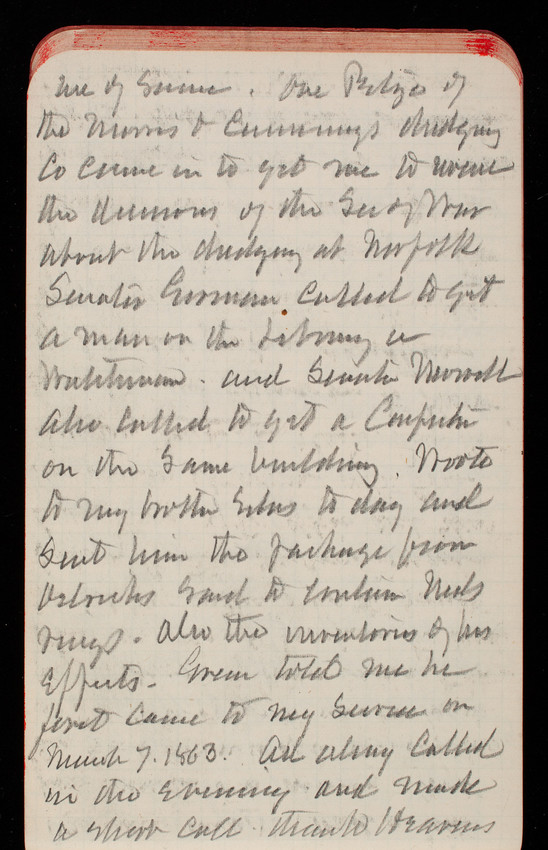 me of Service. One Relyea of
the Morris & Cummings dredging
Co came in to get me to
the decisions of the Sec of War
about the dredging at Norfolk
Senator Gorman called to get
a man on the Library as
Watchman. and Senator Morrill
also called to get a Carpenter
on the same building. Wrote
to my brother Silas to day and
sent him the package from
said to contain Neds
rings. Also the inventories of his
Effects. Green told me he
first came to my service on
March 7. 1863. called
in the evening and made
a short call. thank Heavens